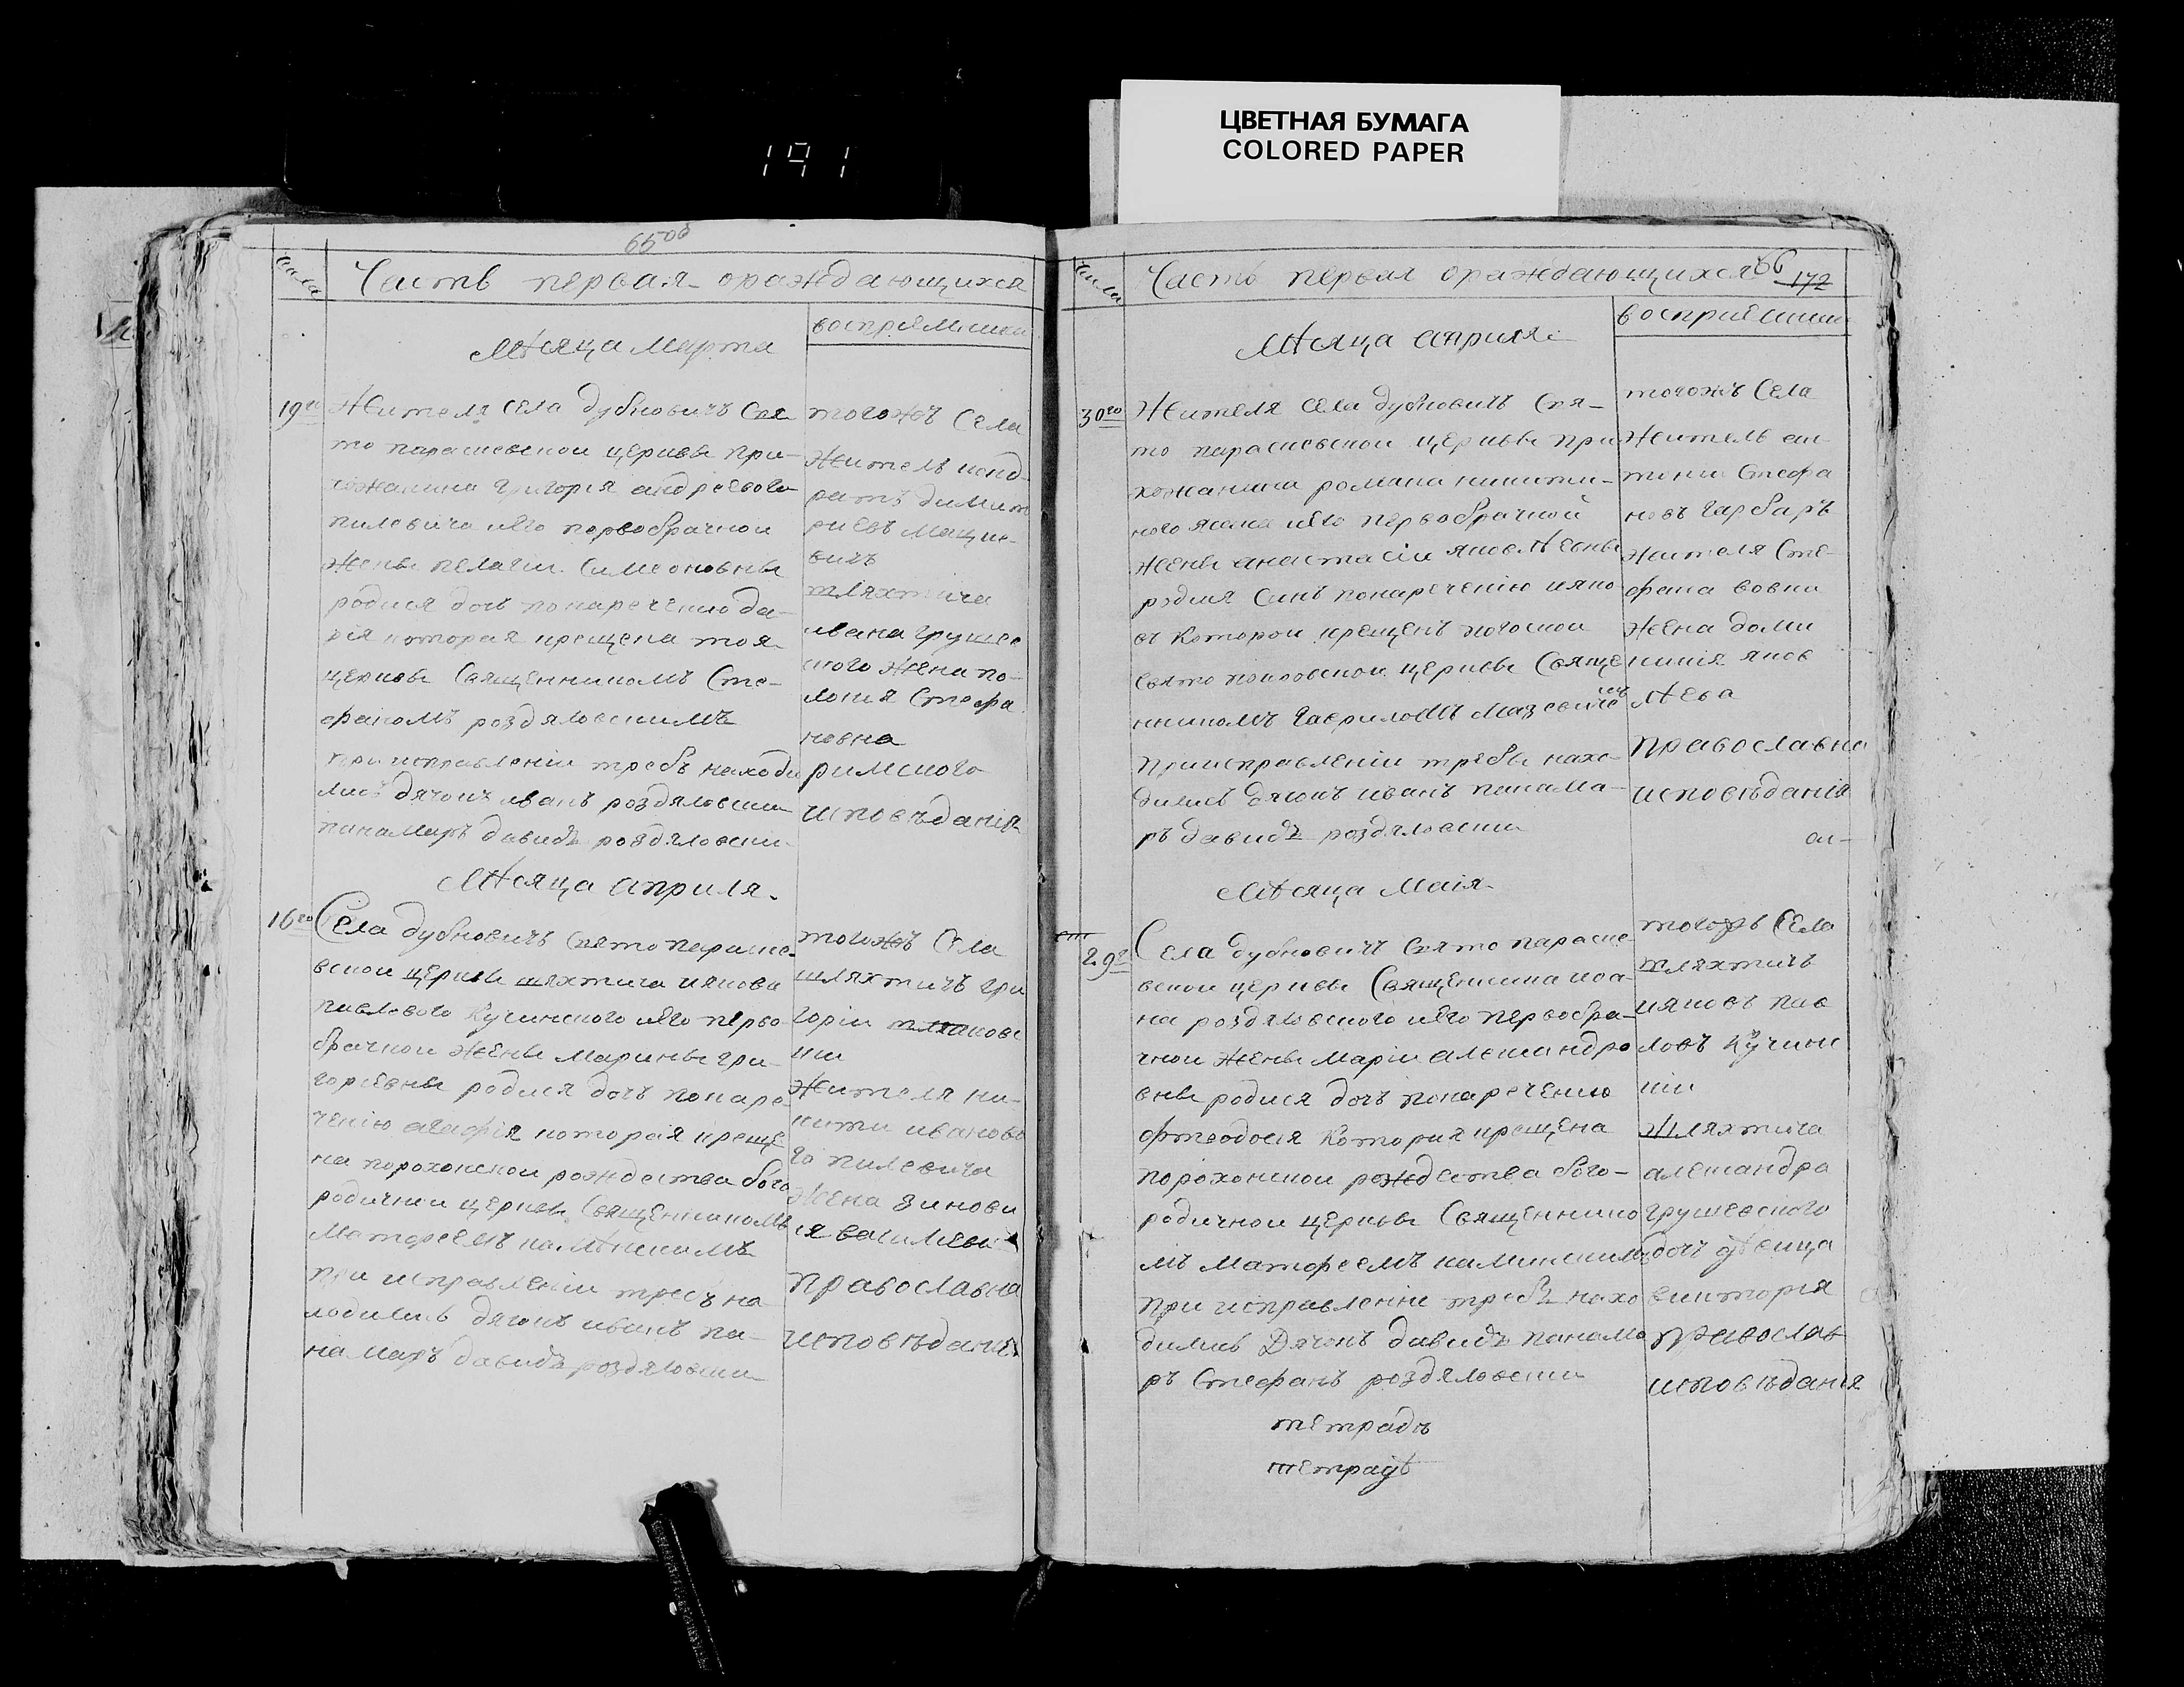 ЦВЕТНАЯ БУМАГА
COLORED PAPER
191
65об
числа
Часть первая ораждающихся
восприемники
Мѣсяца Марта
19го
Жителя села дубновичъ Свя-
то параскевской церквы при-
хожанина григорія андреевого
пилевича иего первобрачной
жены пелагии Симеоновны
родися дочь понаречению да-
рія которая крещена тоя
церквы Священникомъ Сте-
фаномъ роздяловскимъ
при исправленіи требъ находи
лись дячокъ иванъ роздяловски
панамаръ давидъ роздяловски
тогожъ Села
житель конд-
ратъ димит
риевъ Мацке-
вичъ
шляхтича
ивана грушев
ского жена по-
лонія Стефа
новна
римского
исповѣданія
Мѣсяца априля
16го
Села дубновичъ Свято параске-
вской церквы шляхтича иякова
павлового Кучинского иего перво-
брачной жены Марины гри-
гориевны родися дочь понаре-
ченію агафія которая креще
на порохонской рождества бого
родичной церквы Священникомъ
Матфеемъ камѣнскимъ
при исправленіи требъ на
ходились дячокъ иванъ па-
намаръ давидъ роздяловски
тогожъ Села
шляхтичъ гри
горіи
жителя ни-
кити иваново
го пилевича
жена зинови
я василева
православна
исповѣданія
66
172
числа
Часть первая ораждающихся
восприемники
Мѣсяца априля
30го
Жителя села дубновичъ Свя-
то параскевской церквы при
хожанина романа никити-
ного иего первобрачной
жены анастасіи яковлѣвны
родися Синъ понаречению ияко
въ которой крещенъ погоской
свято покровской церквы Свяще
нникомъ гавриломъ Мазевиче
приисправленіи требы нахо-
дились дячокъ иванъ панама-
ръ давидъ роздяловски
тогожъ Села
житель
Стефа
новъ гарбаръ
жителя Сте-
фана вовка
жена доми
никія яков
лѣва
православна
исповѣданія
Мѣсяца Маія
29г
Села дубновичъ Свято параске-
вской церквы Священника иоа-
на роздяловского иего первобра-
чной жены Маріи александро
вны родися дочь понаречению
фтеодосія Которая крещена
порохонской рождества бого-
родичной церквы Священнико
мъ матфеемъ каминскимъ
при исправление требъ нахо
дились Дячокъ давидъ панама
ръ Стефанъ роздяловски
тетрадь
тетрадь
тогожъ Села
шляхтичъ
ияковъ пав
ловъ Кучинс
кіи
шляхтича
александра
грушевского
дочь дѣвица
викторія
православ
исповѣданія